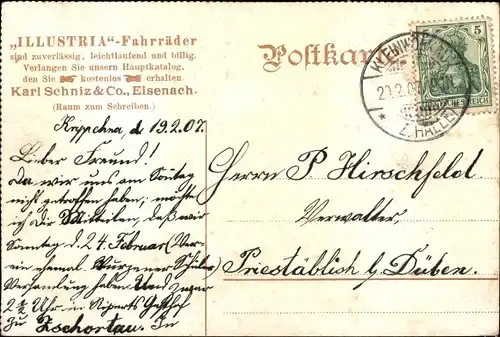 „ILLUSTRIA“-Fahrräder
sind zuverlässig, leichtlaufend und billig.
Verlangen Sie unsern Hauptkatalog,
den Sie kostenlos erhalten.
Karl Schniz & Co., Eisenach.
(Raum zum Schreiben.)
Postkar
5
20.2.0
Z. HALLE
SCHES REICH
d 19.2.07.
Lieber Freund!
Da wir uns am Sonntag
nicht getroffen haben, möchte
ich Dir Mitteilen, daß wir
Sonntag d. 24. Februar (Ver-
ein ehemal. Wurzener Schüler)
Versammlung haben. Und zwar
2 ½ Uhr in Gasthof
zu Zschortau. In
Herrn P Hirschfeld
Verwalter,
Priestäblich b/ Düben.